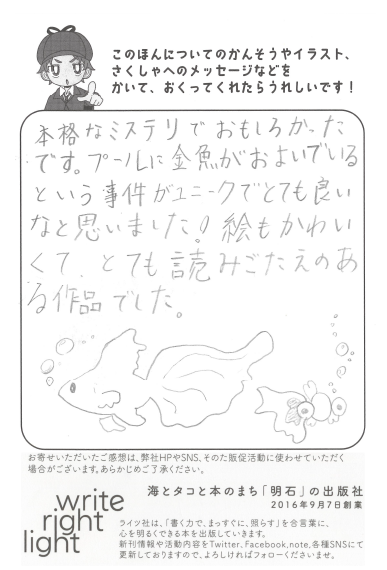 このほんについてのかんそうやイラスト、
さくしゃへのメッセージなどを
かいて、おくってくれたらうれしいです！
本格なミステリでおもしろかった
です。プールに金魚がおよいでいる
という事件がユニークでとても良い
なと思いました！絵もかわい
くて、とても読みごたえのあ
る作品でした。
お寄せいただいたご感想は、弊社HPやSNS、そのた販促活動に使わせていただく
場合がございます。あらかじめご了承ください。
海とタコと本のまち「明石」の出版社
2016年9月7日創業
write
right
light
ライツ社は、「書く力で、まっすぐに、照らす」を合言葉に、
心を明るくできる本を出版していきます。
新刊情報や活動内容をTwitter、Facebook、note、各種SNSにて
更新しておりますので、よろしければフォローくださいませ。